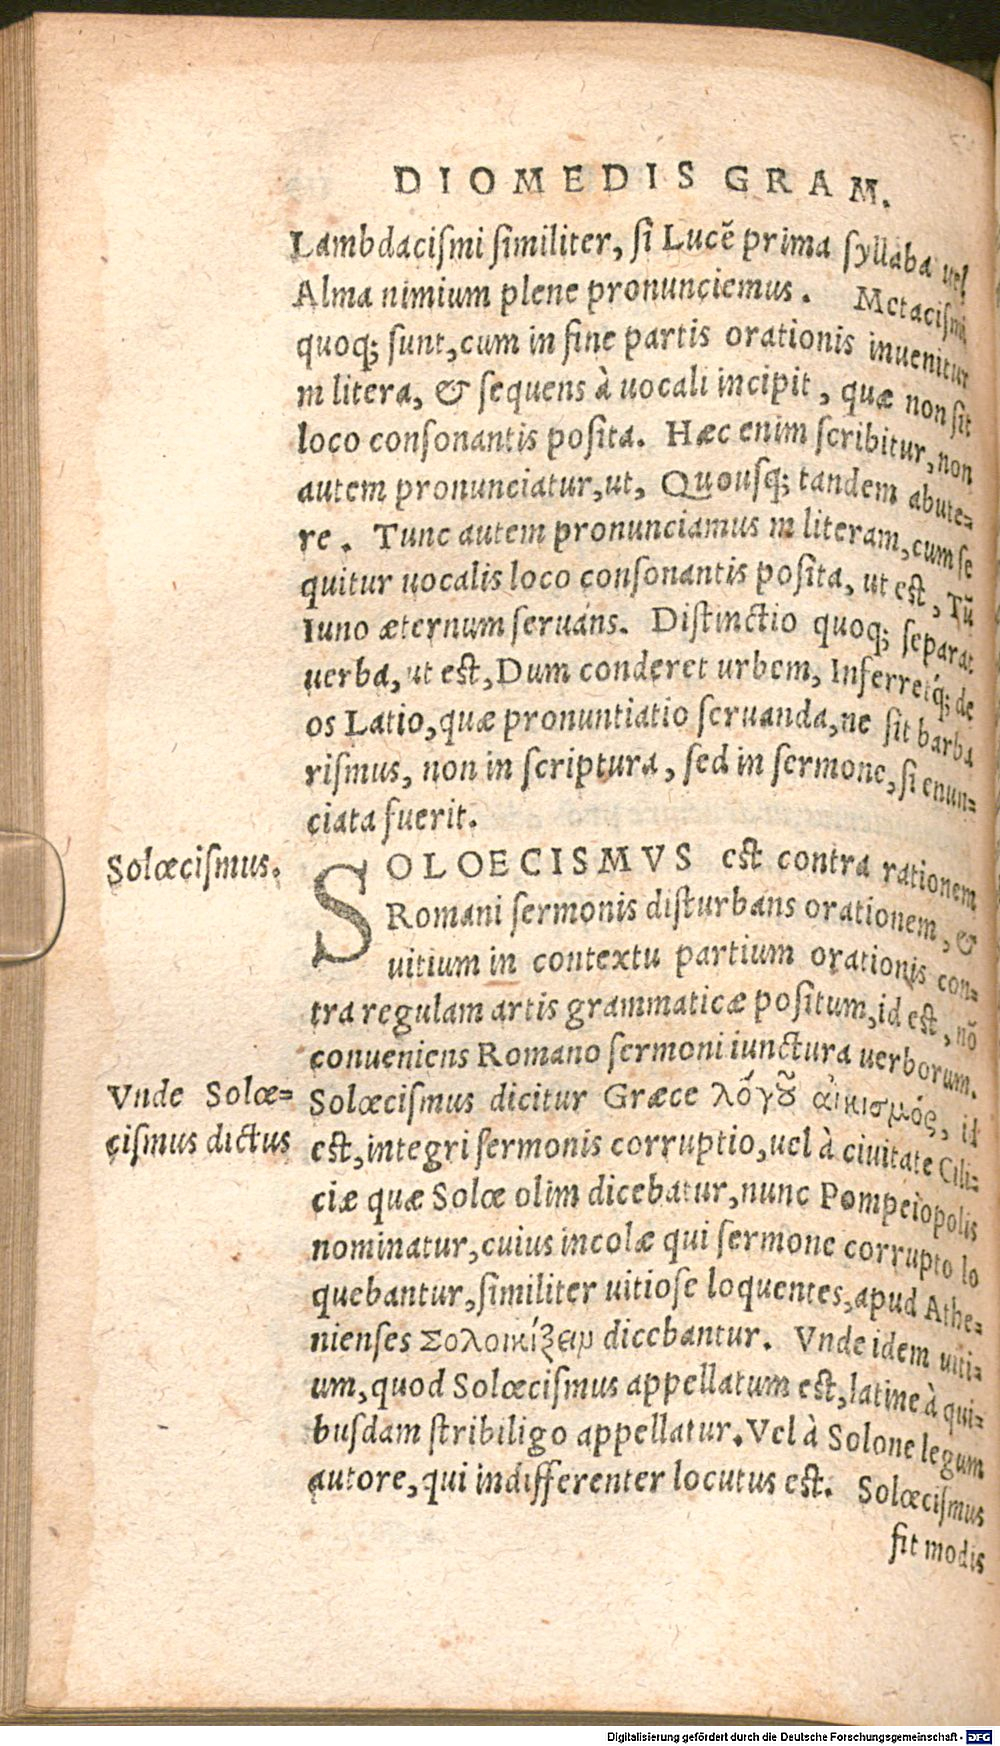 DIOMEDIS GRAM.
Lambdaciſmi ſimiliter, ſi Lucẽ prima ſyllaba uel
Alma nimium plene pronunciemus. Metaciſmi
quoq; ſunt, cum in fine partis orationis inuenitur
m litera, & ſequens à uocali incipit, quæ non ſit
loco conſonantis poſita. Hæc enim ſcribitur, non
autem pronunciatur, ut, Quouſq; tandem abute=
re. Tunc autem pronunciamus m literam, cum ſe
quitur uocalis loco conſonantis poſita, ut eſt, Tũ
Iuno æternum ſeruáns. Diſtinctio quoq; ſeparat
uerba, ut eſt, Dum conderet urbem, Inferretq́; de
os Latio, quæ pronuntiatio ſeruanda, ne ſit barba
riſmus, non in ſcriptura, ſed in ſermone, ſi enun=
ciata fuerit.
Solœciſmus.
SOLOECISMVS eſt contra rationem
Romani ſermonis diſturbans orationem, &
uitium in contextu partium orationis con=
tra regulam artis grammaticæ poſitum, id eſt, nõ
conueniens Romano ſermoni iunctura uerborum.
Vnde Solœ=
ciſmus dictus
Solœciſmus dicitur Græce λόγου αἰκισμός, id
eſt, integri ſermonis corruptio, uel à ciuitate Cili=
ciæ quæ Solœ olim dicebatur, nunc Pompeiopolis
nominatur, cuius incolæ qui ſermone corrupto lo
quebantur, ſimiliter uitioſe loquentes, apud Athe=
nienſes Σολοικίζειν dicebantur. Vnde idem uiti=
um, quod Solœciſmus appellatum eſt, latine à qui=
buſdam ſtribiligo appellatur. Vel à Solone legum
autore, qui indifferenter locutus eſt. Solœciſmus
fit modis
Digitalisierung gefördert durch die Deutsche Forschungsgemeinschaft - DFG